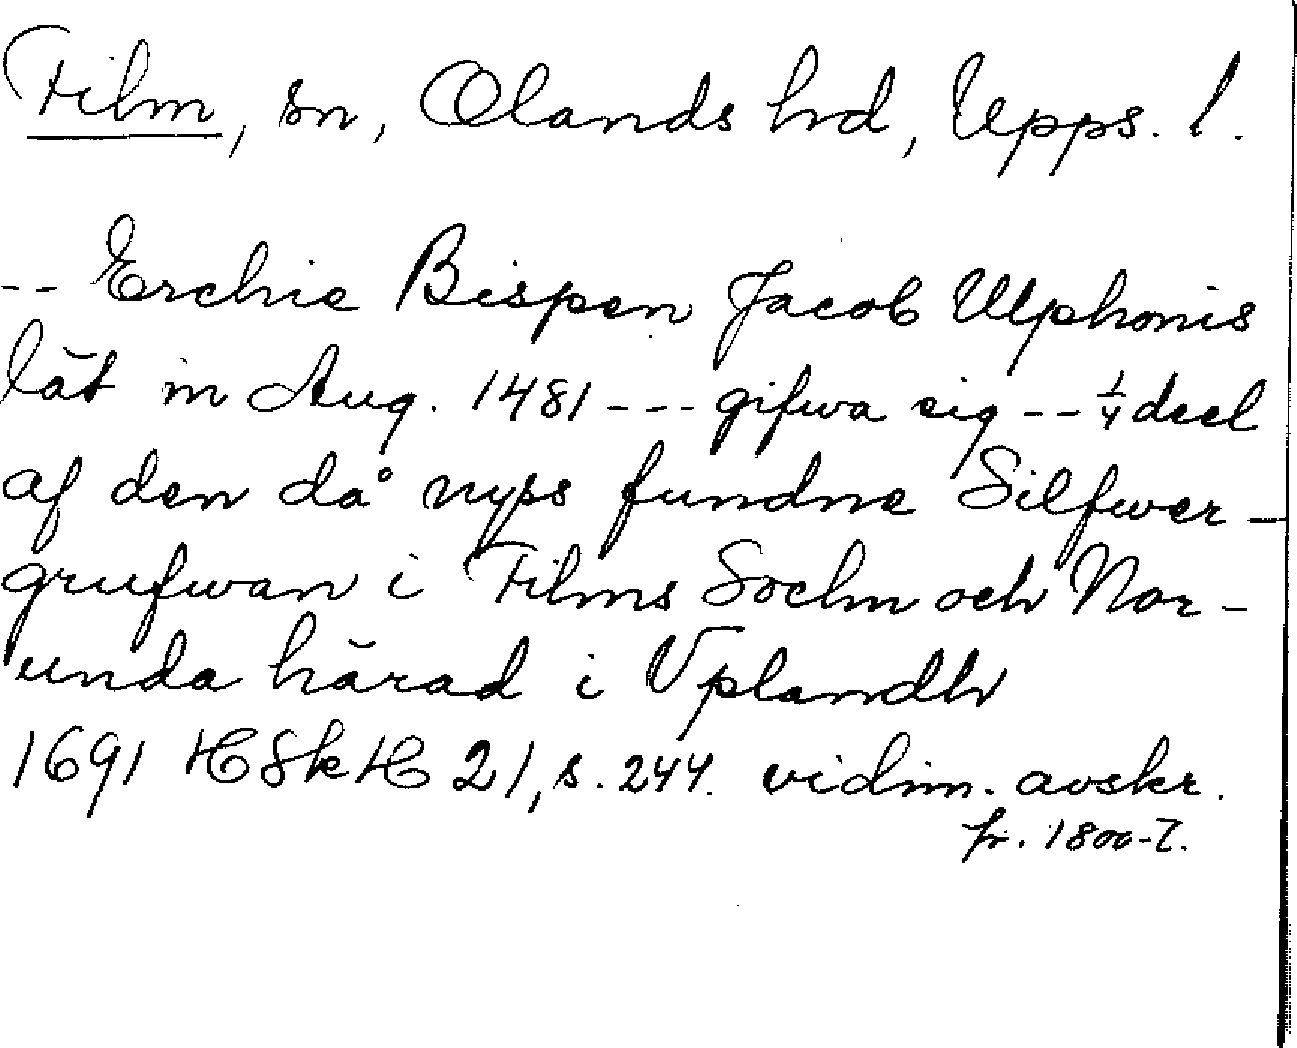 Film, sn, Olands hd, Upps. l.
-- Erchie Bispen Jacob Ulphonis
lät in Aug. 1481 --- gifwa sig -- 1/4 deel
af den då nyss fundne Silfwer-
grufwan i Films Sochn och Nor-
unda härad i Vplandh
1691 HSkH 21, s. 244. vidim. avskr.
fr. 1800-t.